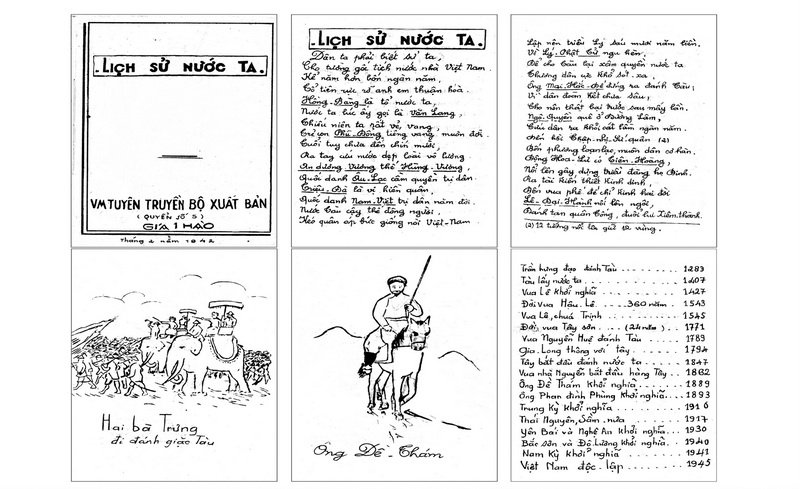 LỊCH SỬ NƯỚC TA.
V.M TUYÊN TRUYỀN BỘ XUẤT BẢN
(QUYỂN SỐ 5)
GIÁ 1 HÀO
Tháng 2 năm 1942
LỊCH SỬ NƯỚC TA.
Dân ta phải biết sử ta,
Cho tường gốc tích nước nhà Việt Nam
Kể năm hơn bốn ngàn năm,
Tổ tiên rực rỡ anh em thuận hòa.
Hồng-Bàng là tổ nước ta,
Nước ta lúc ấy gọi là Văn Lang,
Thiếu niên ta rất vẻ vang,
Trẻ con Phù-Đổng tiếng vang muôn đời.
Tuổi tuy chưa đến chín mươi,
Ra tay cứu nước dẹp loài vô lương
An dương Vương thế Hùng-Vương,
Quốc danh Âu-Lạc cầm quyền trị dân.
Triệu-Đà là vị hiền quân,
Quốc danh Nam-Việt trị dân năm đời.
Nước Tàu cậy thế đông người,
Kéo quân áp bức giống nòi Việt-Nam
Lập nên triều Lý sáu mươi năm liền.
Vì Lý-Phật Tử ngu hèn,
Để cho Tàu lại xâm quyền nước ta
Thương dân cực khổ xót xa,
Ông Mai-Hắc-Đế đứng ra đánh Tàu;
Vì dân đoàn kết chưa sâu,
Cho nên thất bại trước sau mấy lần.
Ngô-Quyền quê ở Đường Lâm,
Cứu dân ra khỏi cát lầm ngàn năm.
Đến hồi Thập-nhị-Sứ quân (2)
Bốn phương loạn lạc, muôn dân cơ hàn.
Động Hoa-Lư có Tiên-Hoàng,
Nổi lên gây dựng triều đàng họ Đinh.
Ra tài kiến thiết kinh dinh,
Đến vua Phế Đế chỉ kinh hoài đời
Lê-Đại-Hành nối lên ngôi,
Đánh tan quân Tống, đuổi lui Xiêm-thành.
(2) 12 tướng nổi lên giữ 12 vùng.
Hai bà Trưng
đi đánh giặc Tàu
Ông Đề-Thám
Trần hưng đạo đánh Tàu ... 1283
Tàu lấy nước ta ... 1407
Vua Lê khởi nghĩa ... 1427
Đời vua Hậu Lê ... 360 năm . 1543
Vua Lê, chúa Trịnh ... 1545
Đời vua Tây sơn ... (24 năm) . 1771
Vua Nguyễn Huệ đánh Tàu ... 1789
Gia Long thông với Tây ... 1794
Tây bắt đầu đánh nước ta ... 1847
Vua nhà Nguyễn bắt đầu hàng Tây .. 1862
Ông Đề Thám khởi nghĩa ... 1889
Ông Phan đình Phùng khởi nghĩa ... 1893
Trung Kỳ khởi nghĩa ... 1916
Thái Nguyên, Sầm nưa ... 1917
Yên Bái và Nghệ An khởi nghĩa . 1930
Bắc sơn và Đô Lương khởi nghĩa . 1940
Nam Kỳ khởi nghĩa ... 1941
Việt Nam độc lập ... 1945